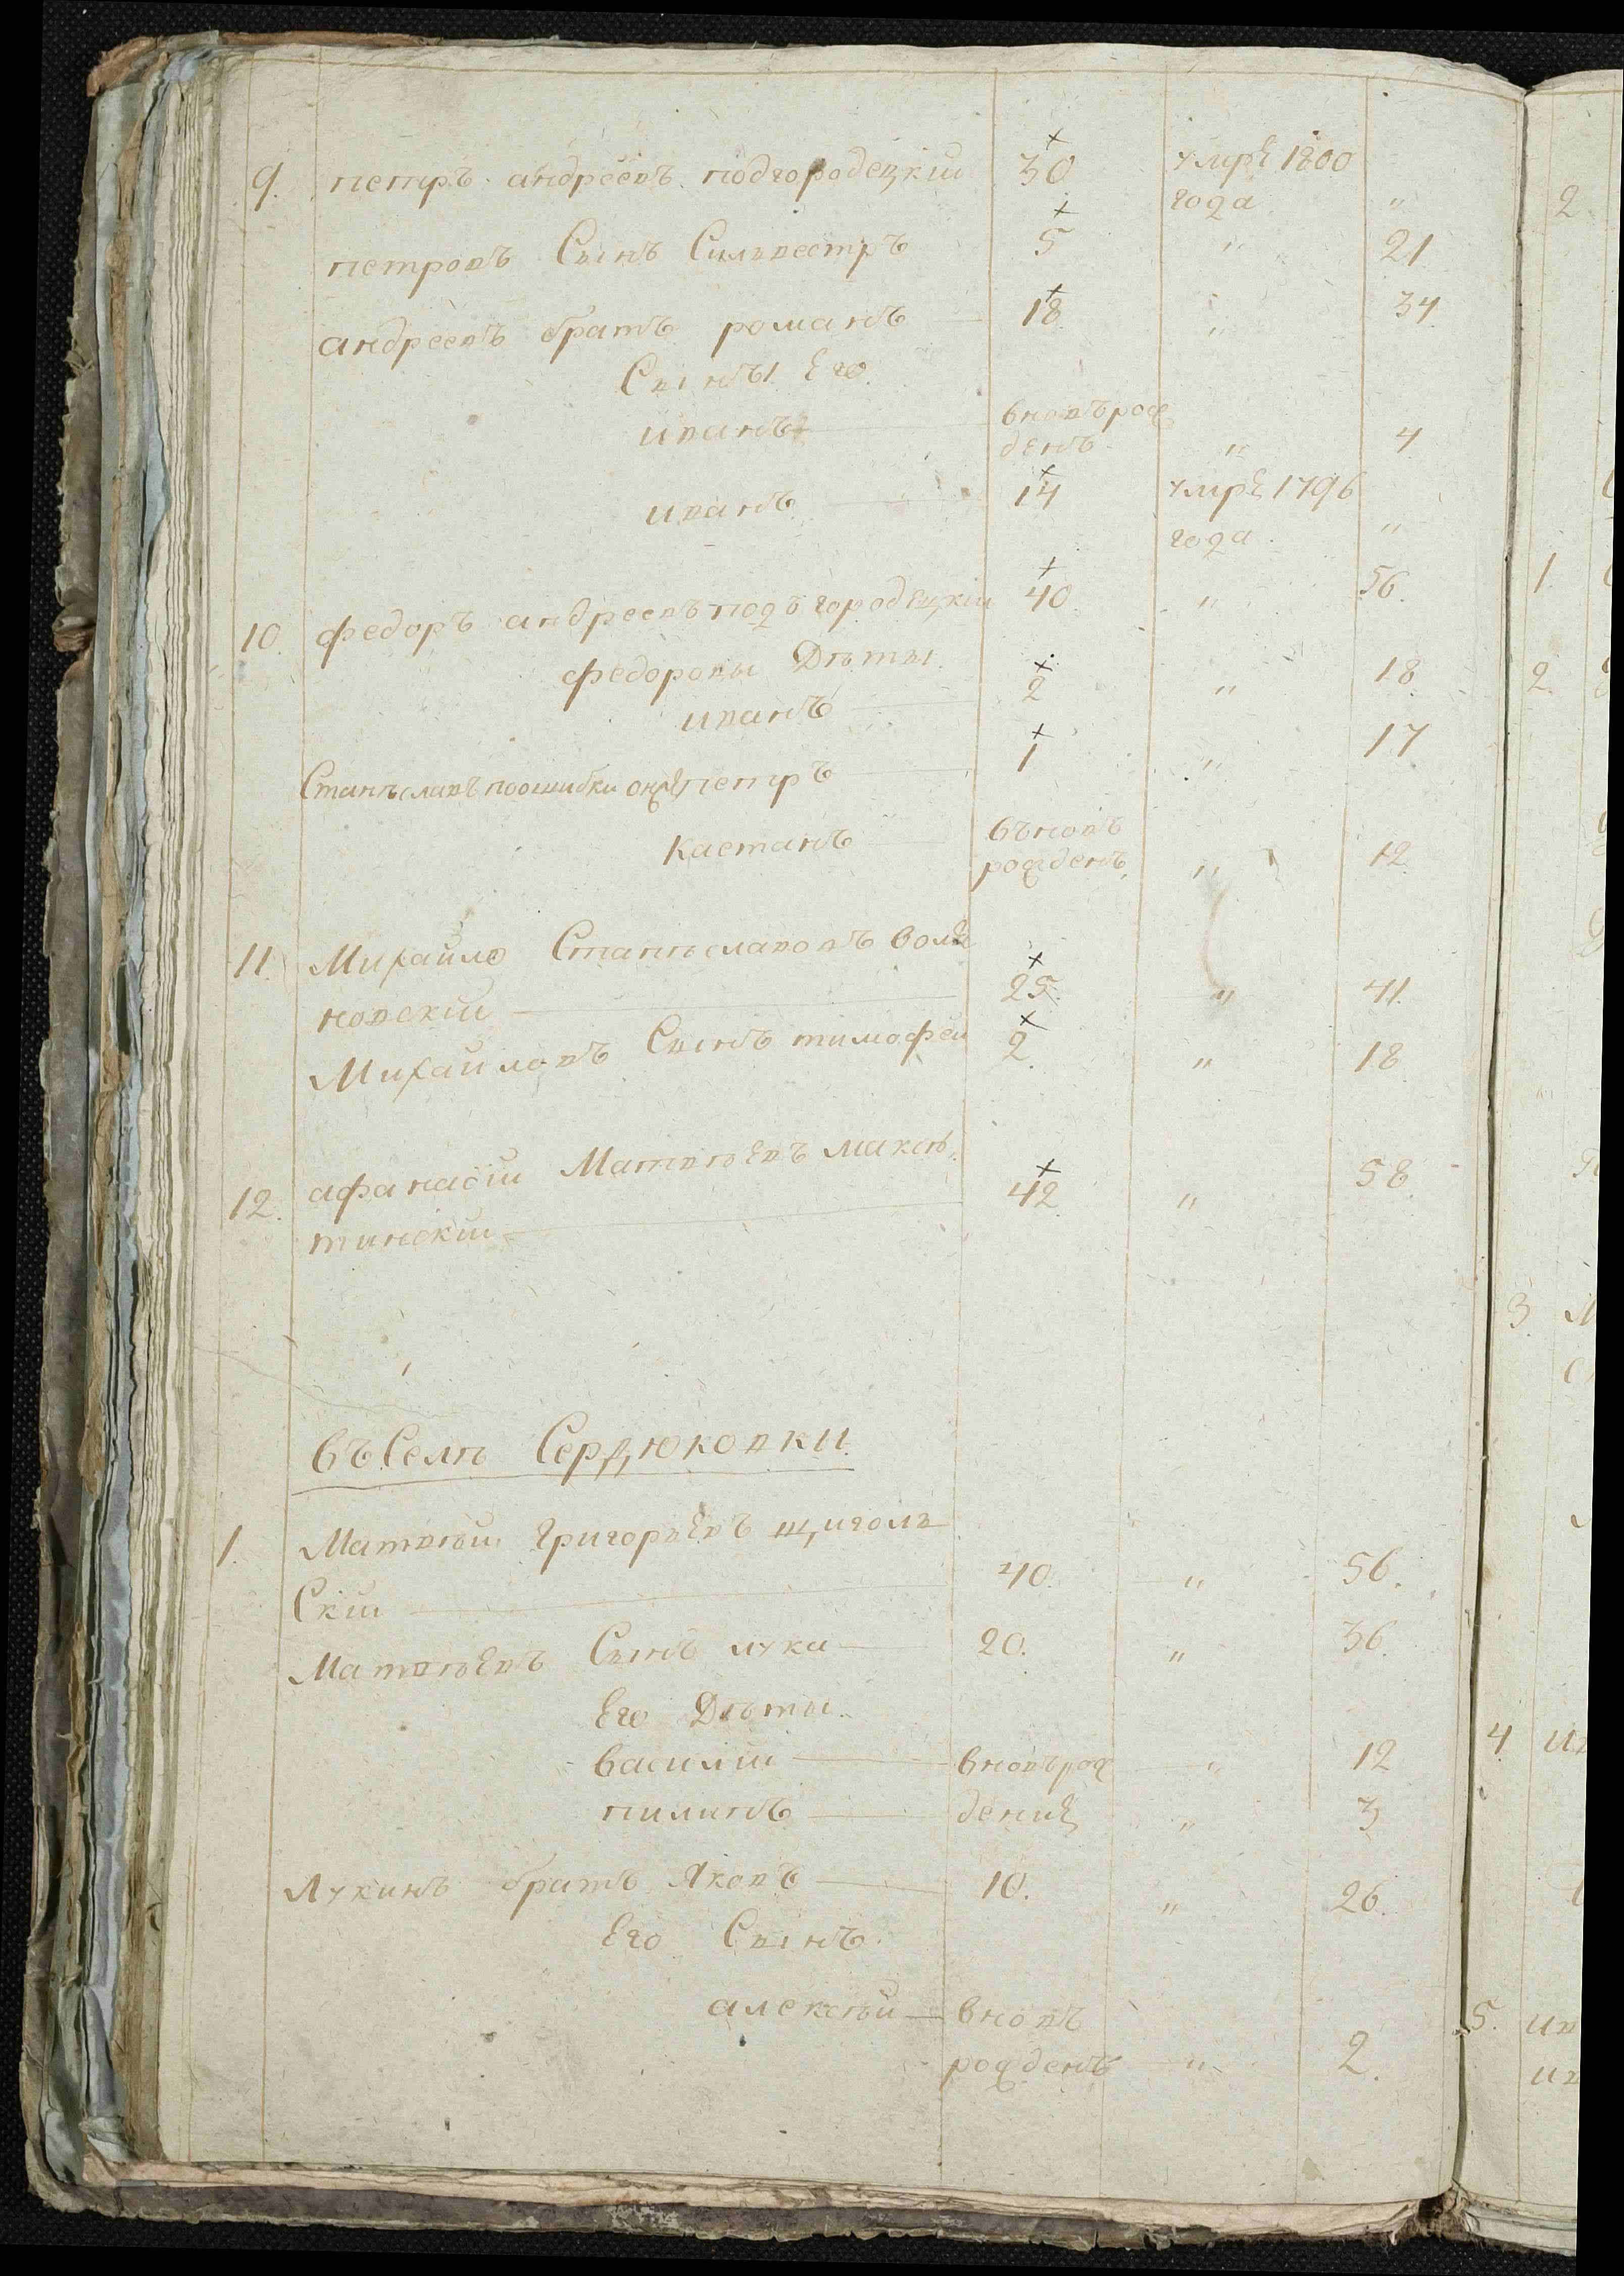 9. петръ андреевъ подгородецкий 30 умрѣ 1800
года „
петровъ Сынъ Сильвестръ 5 „ 21
андреевъ братъ романъ 18 „ 34
Сынъı Его
иванъ вновърож
денъ „ 4
иванъ 14 умре 1796
года „
10. федоръ андреевъ подъгородецкий 40 „ 56.
федоровы Дѣты
иванъ 2 „ 18
Станѣславъ поошибки онже петръ 1 „ 17
Каетанъ вьновъ
рожденъ „ 12
11. Михайло Станѣславовъ воля
новский 25. „ 41.
Михайловъ Сынъ тимофей 2. „ 18
12. афанасий Матвѣевъ максѣ
тинский 42 „ 58
въ Селѣ Сердюковки
1. Матвѣй григорьевъ щиголь
Ский 40. „ 56.
Матвѣевъ Сынъ лука 20. „ 36.
Его Дѣты
василий вновърож „ 12
пилипъ дение „ 3
Лукинъ братъ Яковъ 10. „ 26.
Его Сынъ
алексѣй вновъ
рожденъ „ 2.
2
1.
2.
3.
4 ив
5. ив
ив